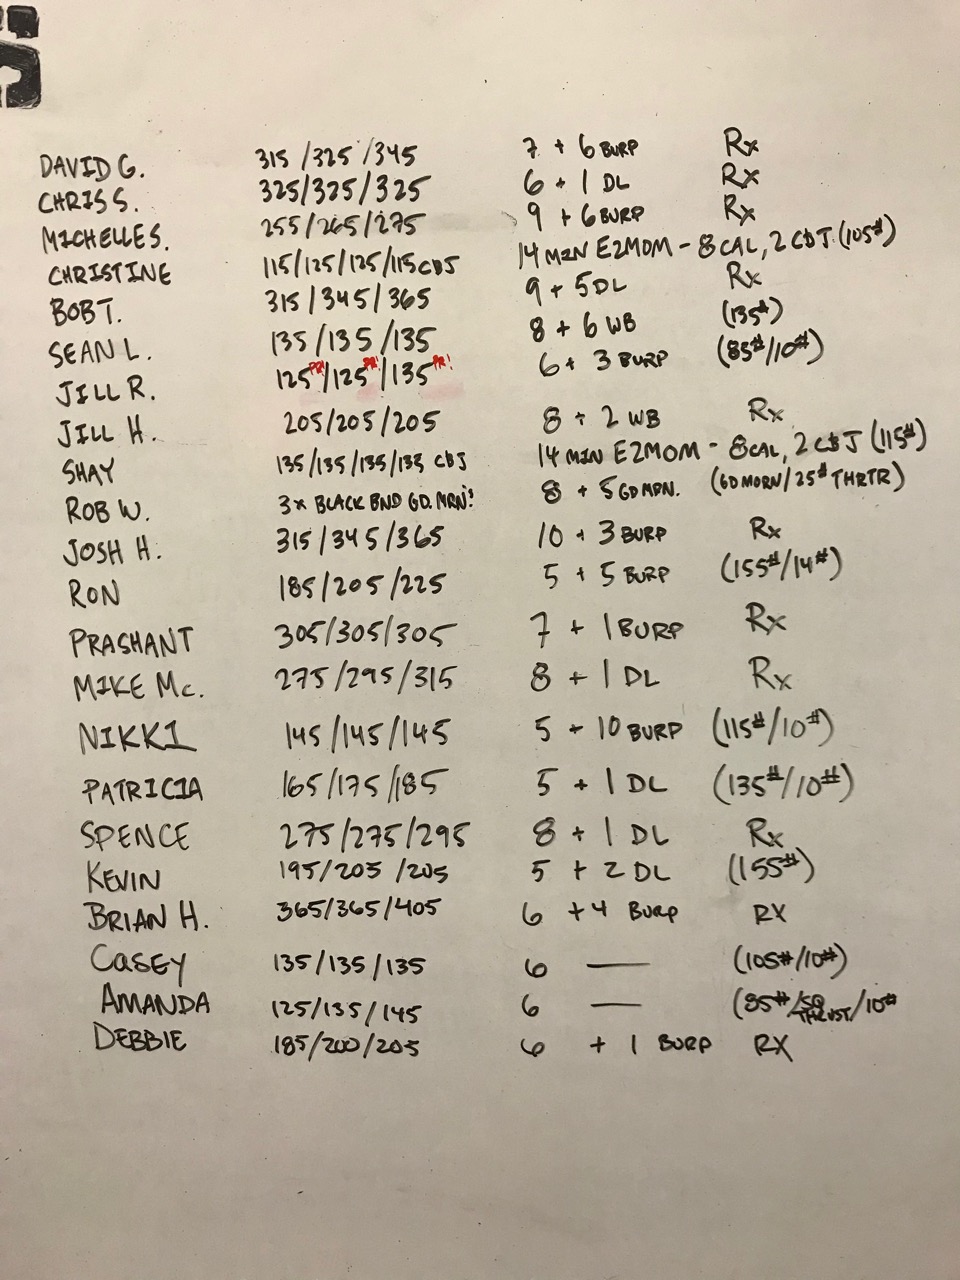 DAVID G. 315/325/345 7 + 6 BURP Rx
CHRIS S. 325/325/325 6 + 1 DL Rx
MICHELLE S. 255/265/275 9 + 6 BURP Rx
CHRISTINE 115/125/125/115 CBJ 14 MIN E2MOM - 8 CAL, 2 CBJ (105#)
BOB T. 315/345/365 9 + 5 DL Rx
SEAN L. 135/135/135 8 + 6 WB (135#)
JILL R. 125 PR!/125 PR!/135 PR! 6 + 3 BURP (85#/10#)
JILL H. 205/205/205 8 + 2 WB Rx
SHAY 135/135/135/135 CBJ 14 MIN E2MOM - 8 CAL, 2 CBJ (115#)
ROB W. 3x BLACK BND GD. MRN's 8 + 5 GD MRN. (GD MORN/25# THRTR)
JOSH H. 315/345/365 10 + 3 BURP Rx
RON 185/205/225 5 + 5 BURP (155#/14#)
PRASHANT 305/305/305 7 + 1 BURP Rx
MIKE Mc. 275/295/315 8 + 1 DL Rx
NIKKI 145/145/145 5 + 10 BURP (115#/10#)
PATRICIA 165/175/185 5 + 1 DL (135#/10#)
SPENCE 275/275/295 8 + 1 DL Rx
KEVIN 195/205/205 5 + 2 DL (155#)
BRIAN H. 365/365/405 6 + 4 BURP RX
CASEY 135/135/135 6 — (105#/10#)
AMANDA 125/135/145 6 — (85#/SQ THRUST/10#
DEBBIE 185/200/205 6 + 1 BURP RX